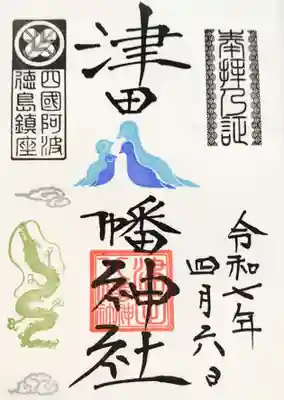 奉拝乃証
令和七年
四月六日
津田八幡神社
四國阿波
徳島鎮座